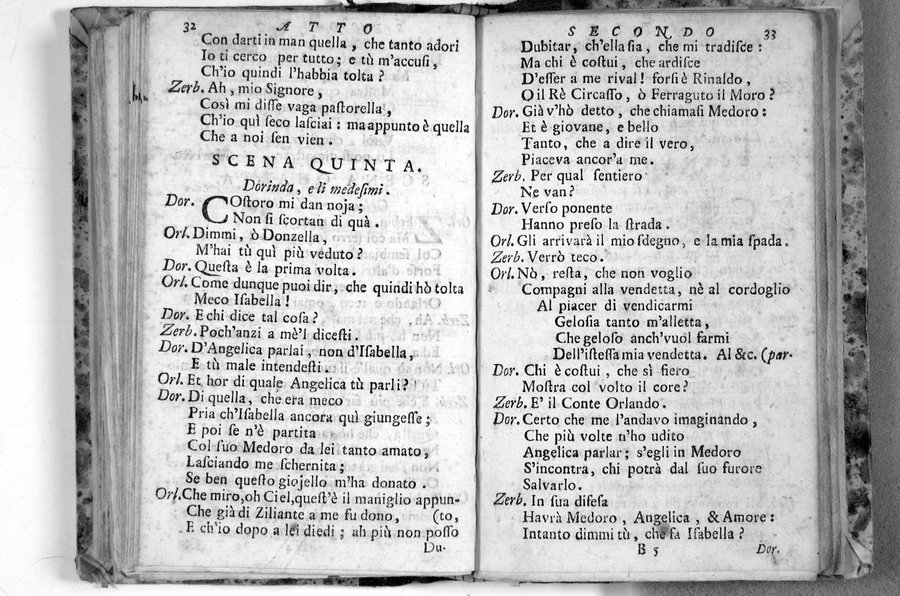 32 ATTO
Con darti in man quella, che tanto adori
Io ti cerco per tutto; e tù m'accuſi,
Ch'io quindi l'habbia tolta?
Zerb. Ah, mio Signore,
Così mi diſſe vaga paſtorella,
Ch'io quì ſeco laſciai: ma appunto è quella
Che a noi ſen vien.
SCENA QUINTA.
Dorinda, e li medeſimi.
Dor. COſtoro mi dan noja;
Non ſi ſcortan di quà.
Orl. Dimmi, ò Donzella,
M'hai tù quì più veduto?
Dor. Queſta è la prima volta.
Orl. Come dunque puoi dir, che quindi hò tolta
Meco Iſabella!
Dor. E chi dice tal coſa?
Zerb. Poch'anzi a mè'l diceſti.
Dor. D'Angelica parlai, non d'Iſabella,
E tù male intendeſti.
Orl. Et hor di quale Angelica tù parli?
Dor. Di quella, che era meco
Pria ch'Iſabella ancora quì giungeſſe;
E poi ſe n'è partita
Col ſuo Medoro da lei tanto amato,
Laſciando me ſchernita;
Se ben queſto giojello m'ha donato.
Orl. Che miro, oh Ciel, queſt'è il maniglio appun-
Che già di Ziliante a me fu dono, (to,
E ch'io dopo a lei diedi; ah più non poſſo
Du-
SECONDO 33
Dubitar, ch'ella ſia, che mi tradiſce:
Ma chi è coſtui, che ardiſce
D'eſſer a me rival! forſi è Rinaldo,
O il Rè Circaſſo, ò Ferraguto il Moro?
Dor. Già v'hò detto, che chiamaſi Medoro:
Et è giovane, e bello
Tanto, che a dire il vero,
Piaceva ancor'a me.
Zerb. Per qual ſentiero
Ne van?
Dor. Verſo ponente
Hanno preſo la ſtrada.
Orl. Gli arrivarà il mio ſdegno, e la mia ſpada.
Zerb. Verrò teco.
Orl. Nò, reſta, che non voglio
Compagni alla vendetta, nè al cordoglio
Al piacer di vendicarmi
Geloſia tanto m'alletta,
Che geloſo anch'vuol farmi
Dell'iſteſſa mia vendetta. Al &c. (par-
Dor. Chi è coſtui, che sì fiero
Moſtra col volto il core?
Zerb. E' il Conte Orlando.
Dor. Certo che me l'andavo imaginando,
Che più volte n'ho udito
Angelica parlar; s'egli in Medoro
S'incontra, chi potrà dal ſuo furore
Salvarlo.
Zerb. In ſua difeſa
Havrà Medoro, Angelica, & Amore:
Intanto dimmi tù, che fa Iſabella?
B 5 Dor.